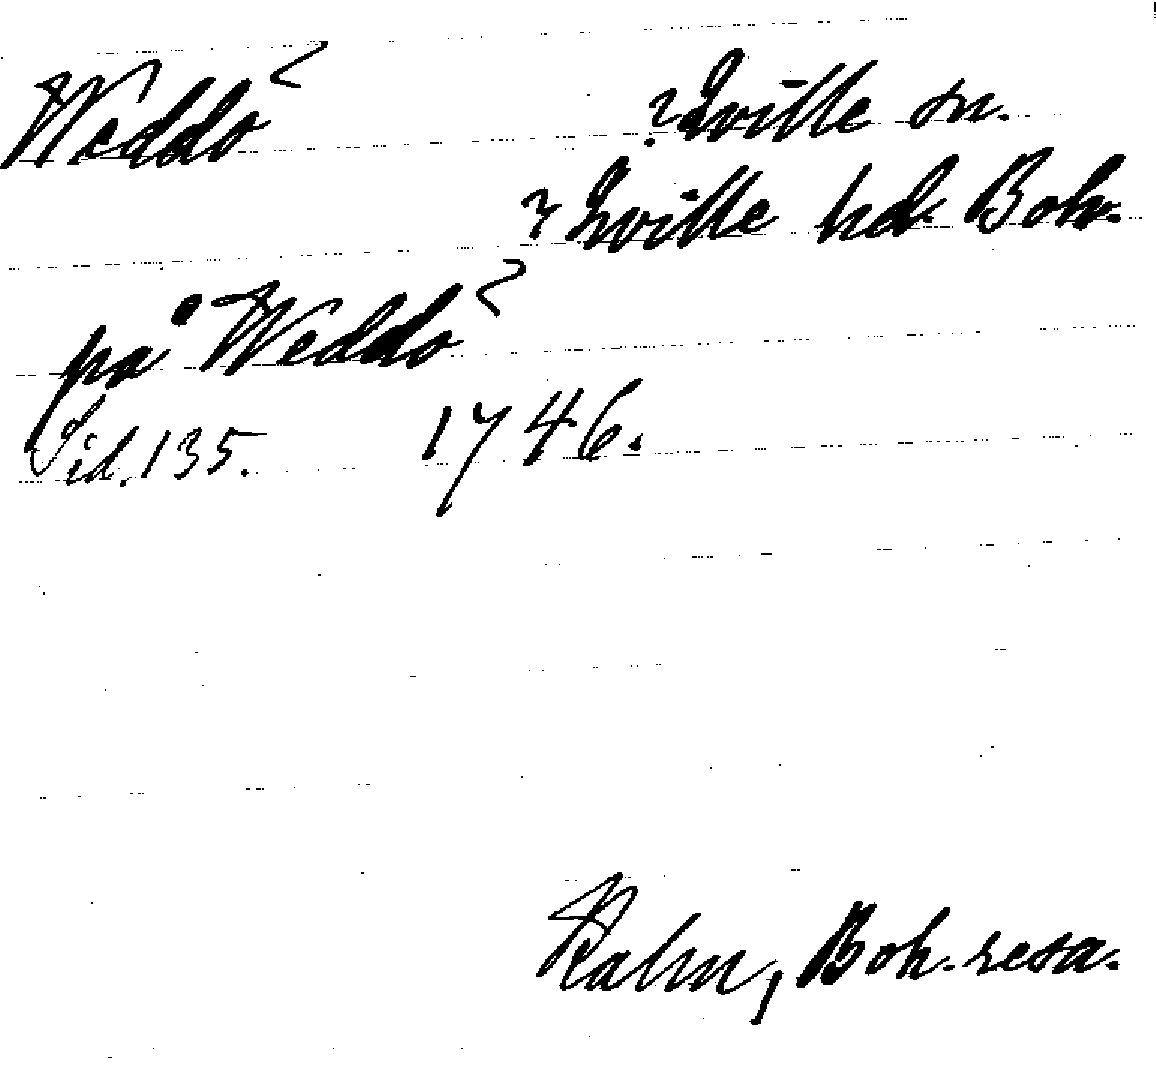 Weddö ?Qville sn.
? Qville hd. Boh.
på Weddö
Sid. 135. 1746.
Kalm, Boh. resa.